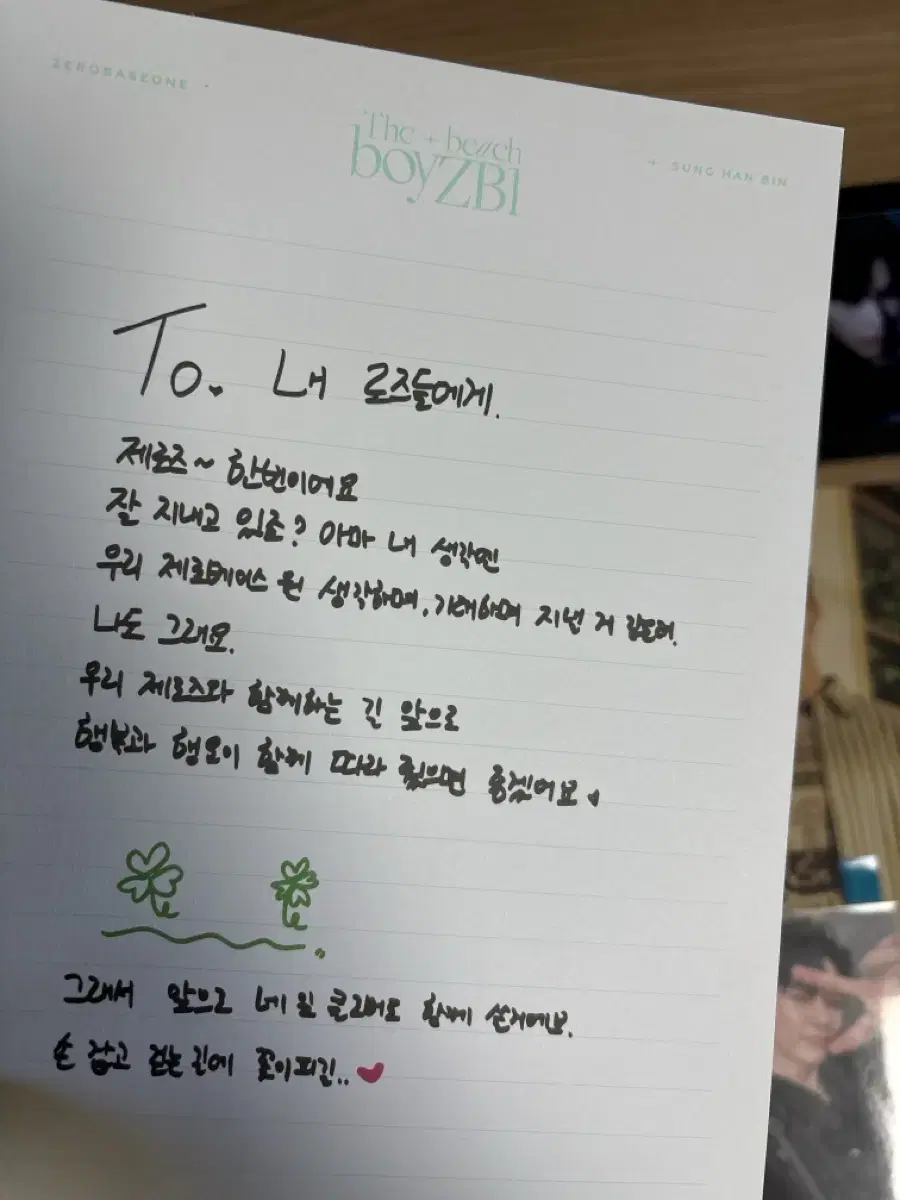 ZEROBASEONE
The + be//ch
boyZB1
+ SUNG HAN BIN
To. 내 로즈들에게.
제로즈~ 한빈이어요
잘 지내고 있죠? 아마 내 생각엔
우리 제로베이스원 생각하며, 기대하며 지낸 거 같은데.
나도 그래요.
우리 제로즈와 함께하는 길 앞으로
행복과 행운이 함께 따라 줬으면 좋겠어요
그래서 앞으로 네잎클로버도 함께 쓴거에요.
손 잡고 걷는 길에 꽃이피길..